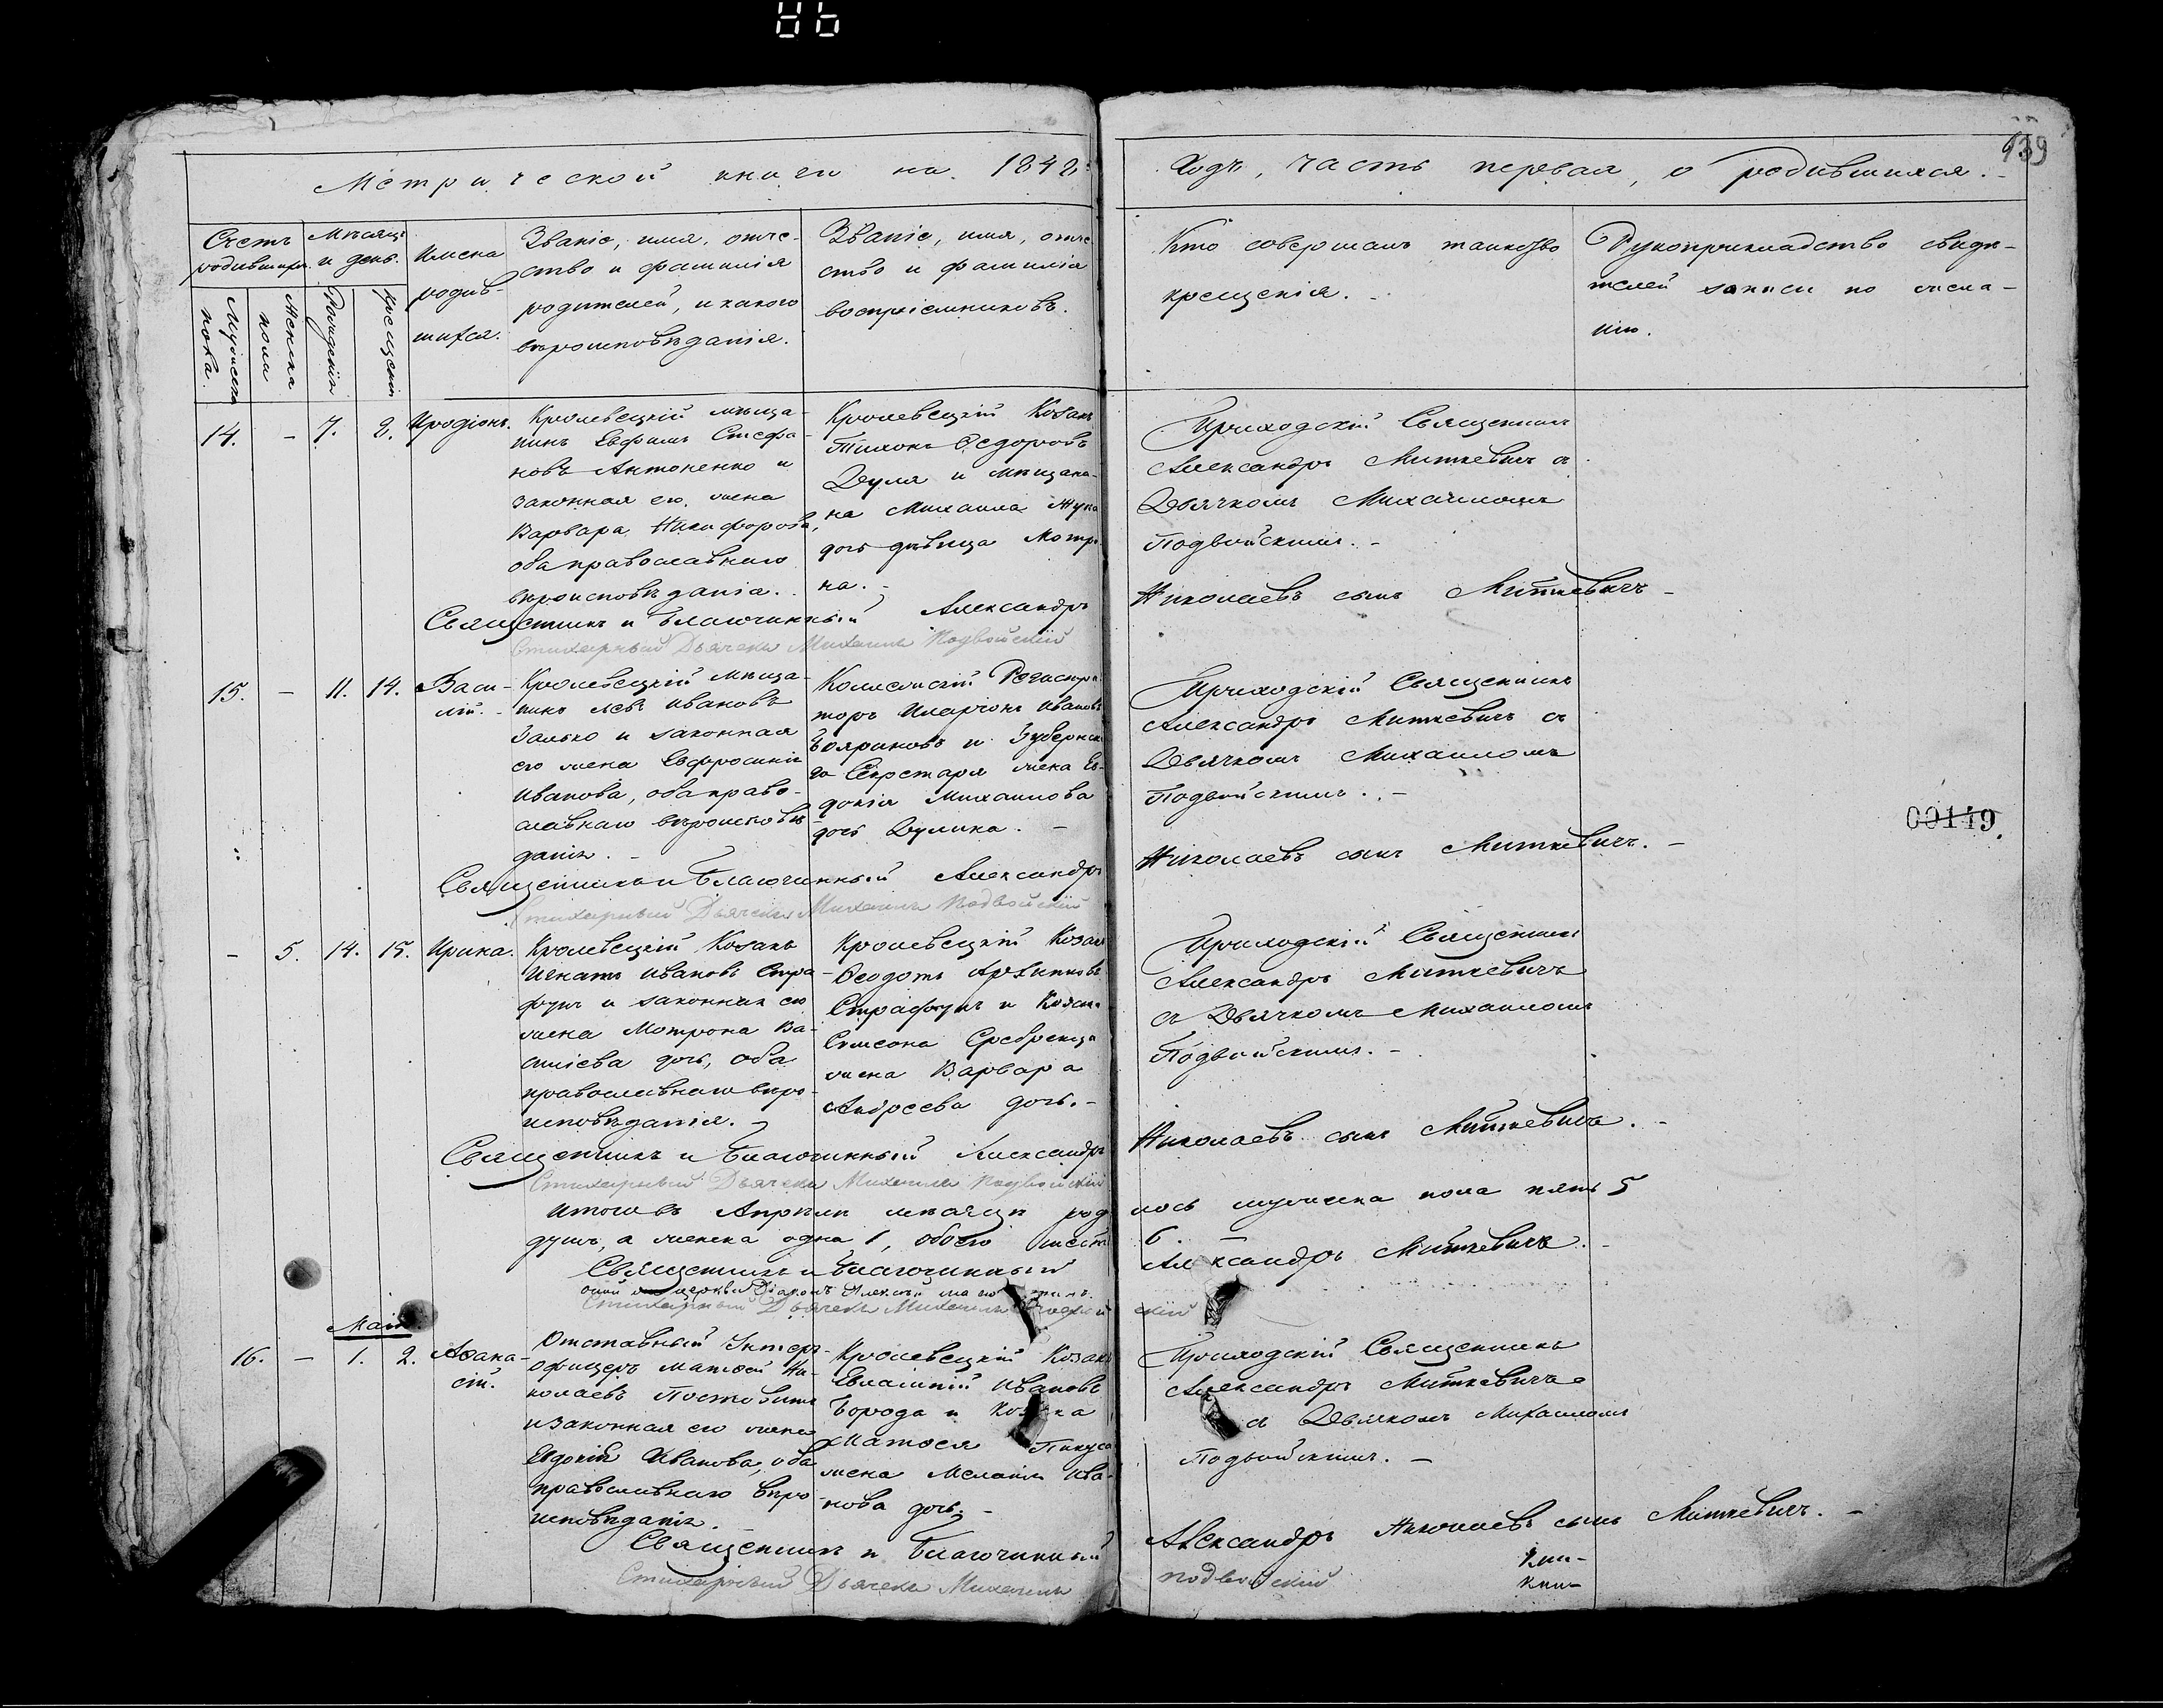 139
Метрической книги на 1848й Годъ, часть первая, о родившихся.
Счетъ родившихся.
Мужеска пола.
Женска пола
Мѣсяцъ и день.
Рожденія
Крещенія
Имена
родив-
шихся.
Званіе, имя, отче-
ство и фамилія
родителей, и какого
вѣроисповѣданія.
Званіе, имя, отче-
ство и фамилія
воспріемниковъ.
Кто совершалъ таинство
крещенія.
Рукоприкладство свидѣ-
телей записи по жела-
нію.
14. - 7. 8. Иродіонъ.
Кролевецкій мѣща-
нинъ Евфимъ Стефа-
новъ Антоненко и
законная его жена
Варвара Никифорова,
оба православнаго
вѣроисповѣданія.
Кролевецкій Козакъ
Тихонъ Ѳедоровъ
Дуля и мѣщани-
на Михаила Жука
дочь дѣвица Мотро-
на.
Приходскій Священникъ
Александръ Миткевичъ съ
Дьячкомъ Михаиломъ
Подвойскимъ.
Священникъ и Благочинный Александръ Николаевъ сынъ Миткевичъ
Стихарный Дьячекъ Михаилъ Подвойскій
15. - 11. 14. Васи-
лій.
Кролевецкій мѣща-
нинъ Левъ Ивановъ
Галько и законная
его жена Евфросинія
Иванова, оба право-
славнаго вѣроисповѣ-
данія.
Коллежскій Регистра-
торъ Иларіонъ Ивановъ
Бояриновъ и Губернска-
го Секретаря жена Ев-
докія Михаилова
дочь Дулина.
Приходскій Священникъ
Александръ Миткевичъ съ
Дьячкомъ Михаиломъ
Подвойскимъ.
00149.
Священникъ и Благочинный Александръ Николаевъ сынъ Миткевичъ.
Стихарный Дьячекъ Михаилъ Подвойскій
- 5. 14. 15. Ирина.
Кролевецкій Козакъ
Игнатъ Ивановъ Стра-
фунъ и законная его
жена Мотрона Ва-
силіева дочь, оба
православнаго вѣро-
исповѣданія.
Кролевецкій Козакъ
Ѳеодотъ Архиповъ
Страфунъ и Козака
Симеона Сребреница
жена Варвара
Андреева дочь.
Приходскій Священникъ
Александръ Миткевичъ
съ Дьячкомъ Михаиломъ
Подвойскимъ.
Священникъ и Благочинный Александръ Николаевъ сынъ Миткевичъ.
Стихарный Дьячекъ Михаилъ Подвойскій
Итого въ Апрѣлѣ мѣсяцѣ родилось мужеска пола пять 5
душъ, а женска одна 1, обоего шесть 6.
Священникъ и Благочинный Александръ Миткевичъ.
церкви Діаконъ Алексѣй
Стихарный Дьячекъ Михаилъ
Маія
16. - 1. 2. Аѳана-
сій.
Отставный Унтеръ-
офицеръ Матѳей Ни-
колаевъ Постовитъ
и законная его жена
Евдокія Иванова, оба
православнаго вѣро-
исповѣданія.
Кролевецкій Козакъ
Евлампій Ивановъ
Борода и Козака
Матѳея Пикуса
жена Меланія Ива-
нова дочь.
Приходскій Священникъ
Александръ Миткевичъ
съ Дьячкомъ Михаиломъ
Подвойскимъ.
Священникъ и Благочинный Александръ Николаевъ сынъ Миткевичъ.
Стихарный Дьячекъ Михаилъ Подвойскій